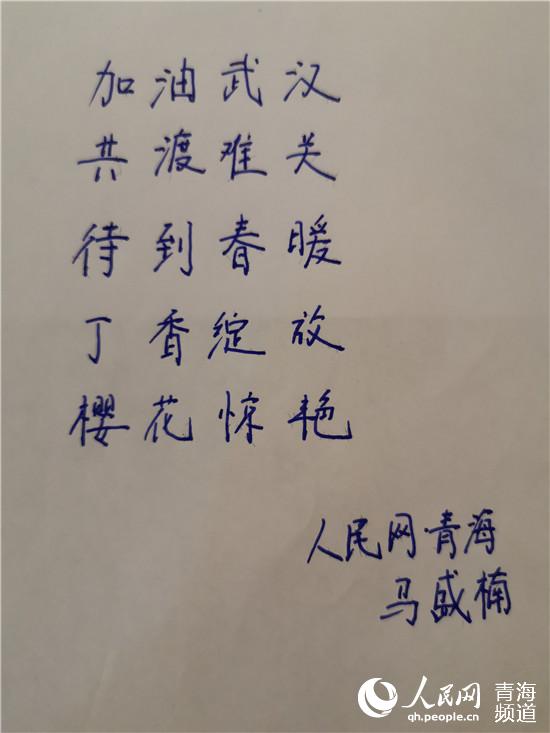 加油武汉
共渡难关
待到春暖
丁香绽放
樱花惊艳
人民网青海
马盛楠
人民网 青海频道
qh.people.cn